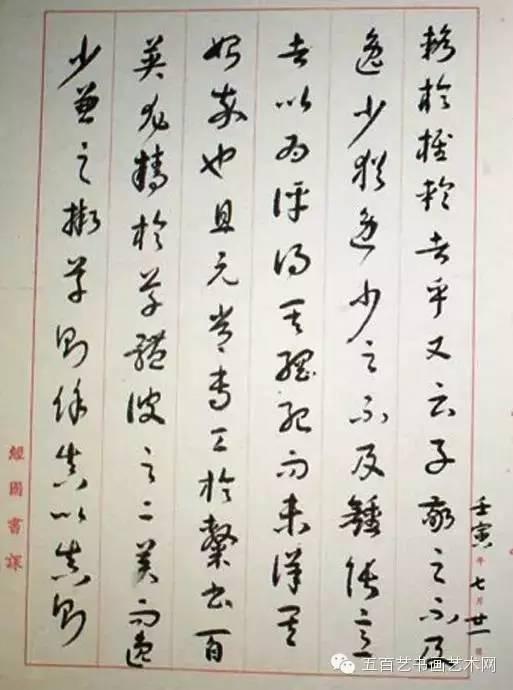 輅於椎輪者乎又云子敬之不及
逸少猶逸少之不及鍾張意
者以為評得其綱紀而未詳其
始卒也且元常專工於隸書百
英尤精於草體彼之二美而逸
少兼之擬草則餘真比真則
壬寅年七月廿一號
經國書課
五百艺书画艺术网